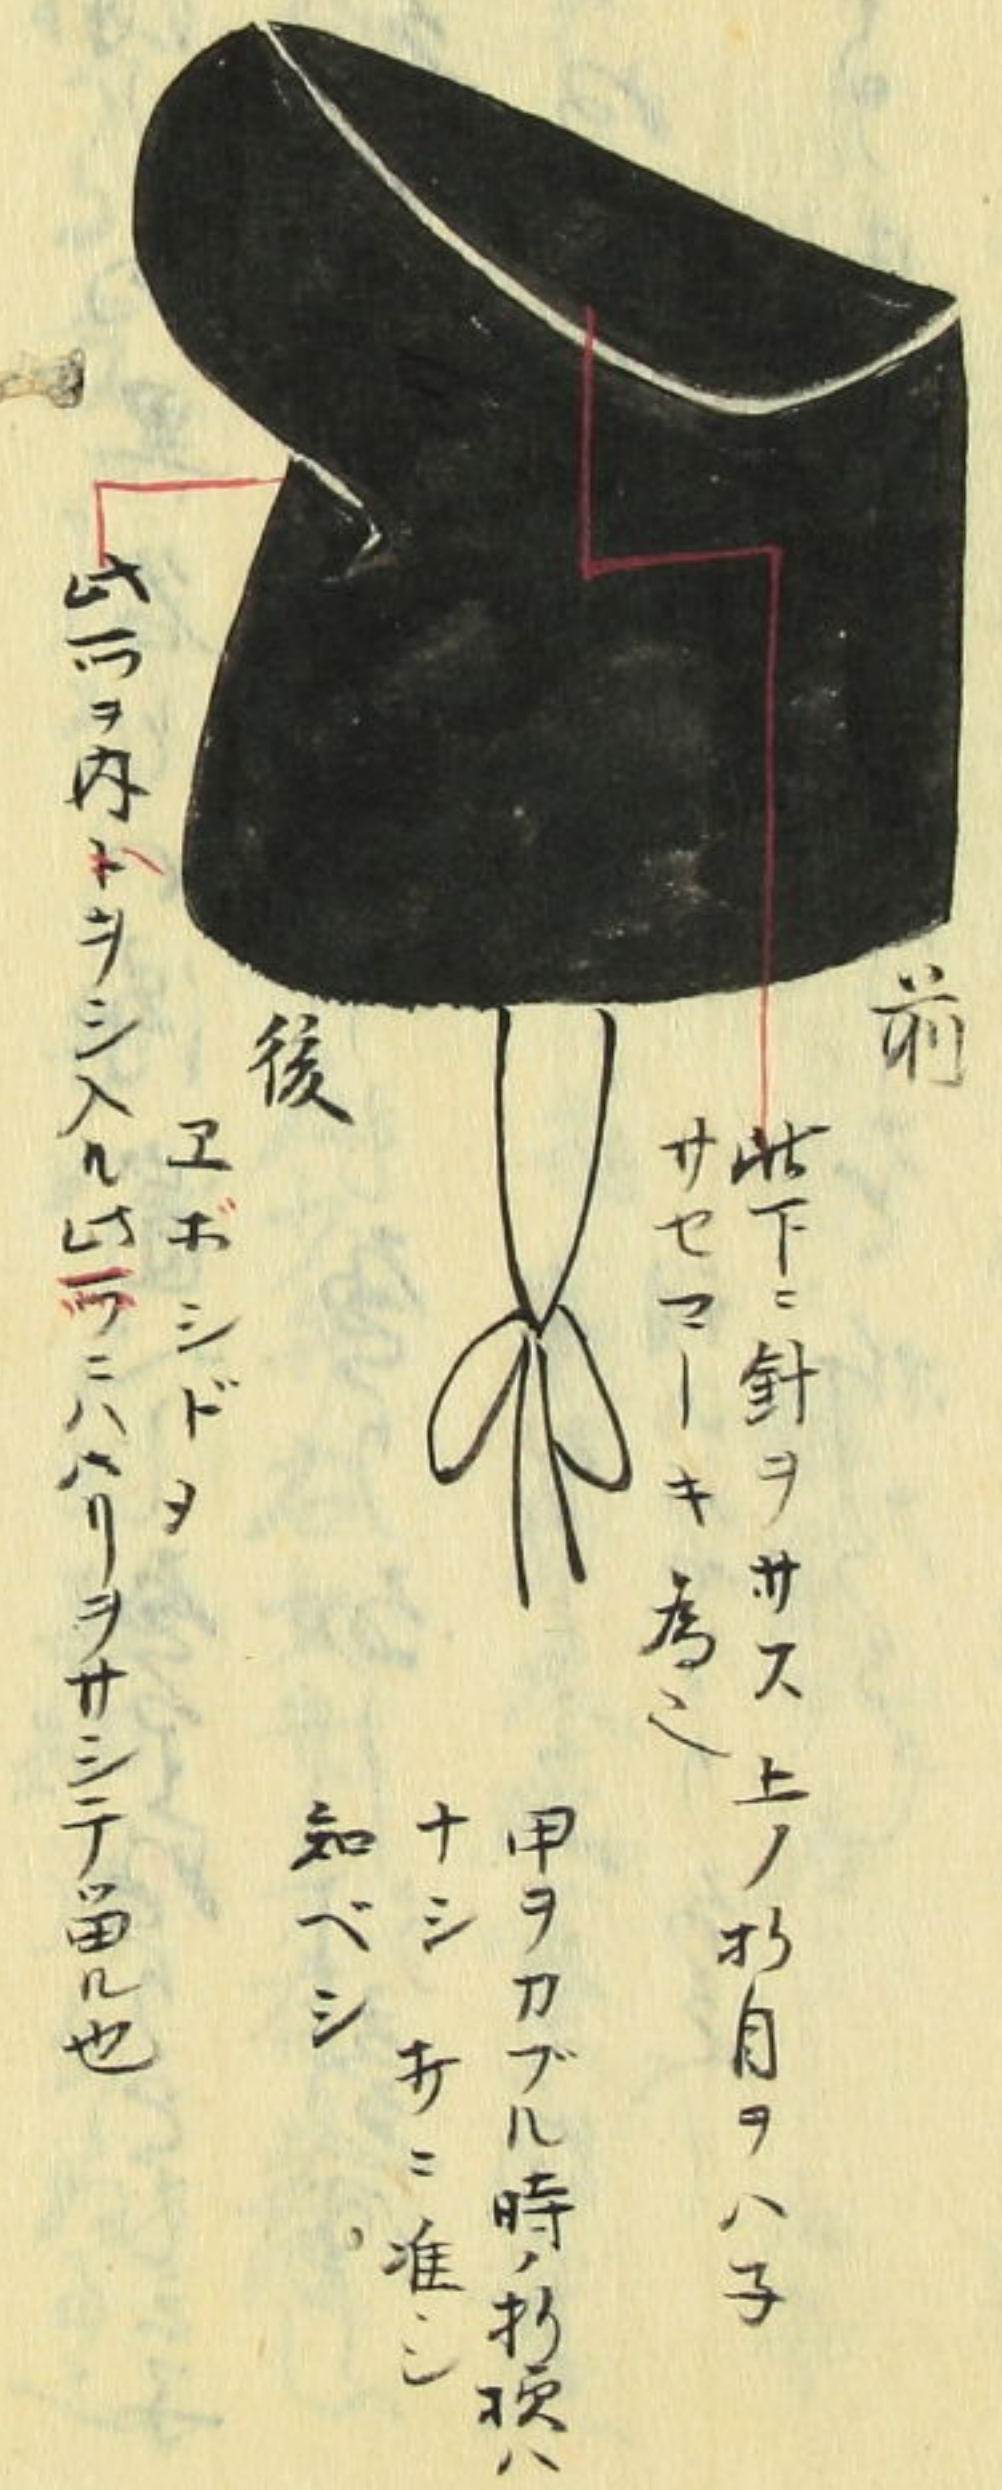 前
此下ニ針ヲサス上ノ折目ヲハ子
サセマーキ為也
甲ヲカブル時ノ折様ハ
ナシ 折ニ准シ
知ベシ。
後
ヱボシドメ
此所ヲ内ヘヲシ入ル此所ニハハリヲサシテ留ル也